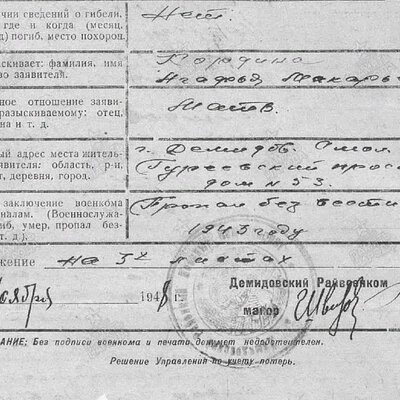 чии сведений о гибели, Нет
где и когда (месяц,
д) погиб, место похорон.
скивает: фамилия, имя
во заявителя. Агафья Макарь
ное отношение заяви-
разыскиваемому: отец, Мать.
на и т. д.
ый адрес места житель- г. Демидов. Смол.
явителя: область, р-н, Гуреевский прое
т, деревня, город. дом N 53.
заключение военкома Пропал без вести
налам. (Военнослужа-
ибит, умер, пропал без- 1943 году
т. д.).
жение на 3х листах
оября 194 г.
Демидовский Райвоенком
майор
АНИЕ: Без подписи военкома и печати документ недействителен.
Решение Управлений по учету потерь.